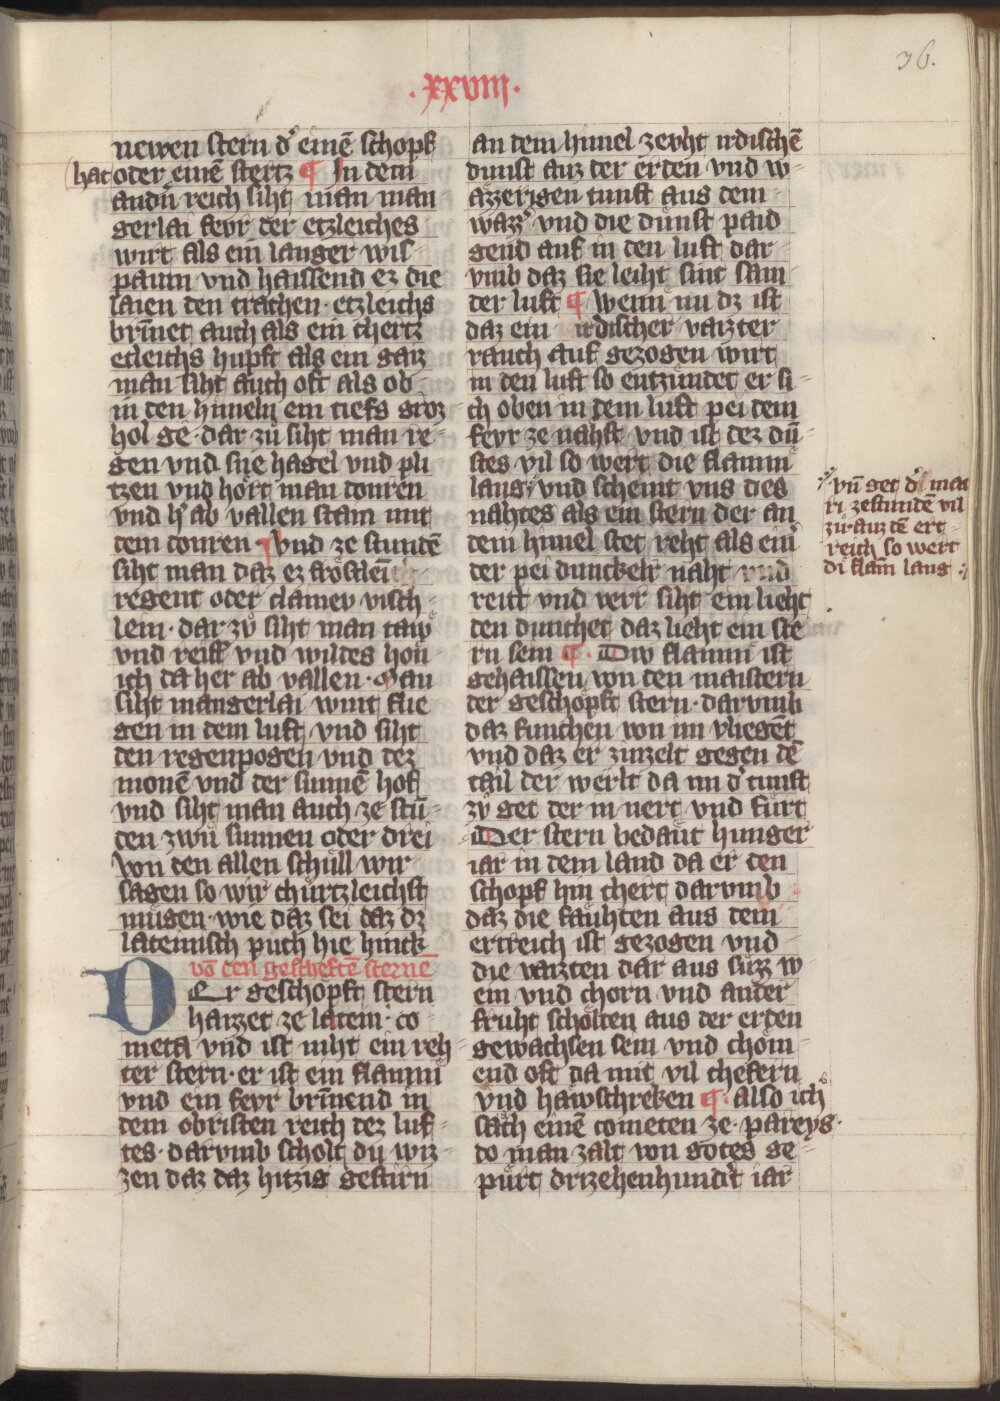 36.
.xxviij.
newen stern dͤ einē schopf
hat oder einē stertz ¶ In dem
andn̄ reich siht man man
gerlai feyr der etzleiches
wirt als ein langer wis
paum vnd haissend ez die
laien den trachen · etzleichs
brīnet auch als ein chertz
etleichs hupft als ein gaiz
man siht auch oft als ob
in den himeln ein tiefs groz
hol ge · dar zů siht man re
gen vnd sne hagel vnd pli
tzen vnd hort man donren
vnd h' ab vallen stain mit
dem donren ¶ Vnd ze stundē
siht man daz ez froschlein
regent oder clainev visch
lein · dar zů siht man taw
vnd reiff vnd wildes hon
ich da her ab vallen · Man
siht mangerlai wint flie
gen in dem luft vnd siht
den regenpogen vnd dez
monē vnd der sunnē hof
vnd siht man auch ze stū
den zwū sunnen oder drei
Von den allen schull wir
sagen so wir churtzleichst
mugen · wie daz sei daz dz
lateinisch puch hie hinck
vō den geschoftē sternē
Der geschopft stern
haizzet ze latein · co
meta vnd ist niht ein reh
ter stern · er ist ein flamm
vnd ein feyr brīnend in
dem obristen reich dez luf
tes · darvmb scholt du wiz
zen daz daz hitzig gestirn
an dem himel zevht irdischē
dunst auz der erden vnd w
azzerigen dunst aus dem
wazz' vnd die dunst paid
gend auf in den luft dar
vmb daz sie leiht sint sam
der luft ¶ wenn nu dz ist
daz ein irdischer vaizter
rauch auf gezogen wirt
in den luft so entzundet er si
ch oben in dem luft pei dem
feyr ze nahst vnd ist dez dū
stes vil so wert die flamm
lang / vnd scheint vns des
nahtes als ein stern der an
dem himel stet reht als ein'
der pei dunckelr naht
reitt vnd verr siht ein lieht
den dunchet daz lieht ein ste
rn sein ¶ · Diw flamm ist
gehaissen von den maistern
der geschopft stern · darvmb
daz funchen von im vliegēt
vnd daz er zinzelt gegen dē
tail der werlt da im dͤ dunst
zů get der in nert vnd furt
Der stern bedaut hunger
iar in dem land da er den
schopf hin chert darvmb
daz die fauhten aus dem
ertreich ist gezogen vnd
die vaizten dar aus suzz w
ein vnd chorn vnd ander
fruht scholten aus der erden
gewachsen sein vnd chom
end oft da mit vil chefern
vnd hawschreken ¶ · also ich
sach einē cometen ze · pareys ·
do man zalt von gotes ge
purt drizehenhundt iar
vn̄ get dͤ mat
ri zestundē vil
zů auz dē ert
reich so wert
di flam lang